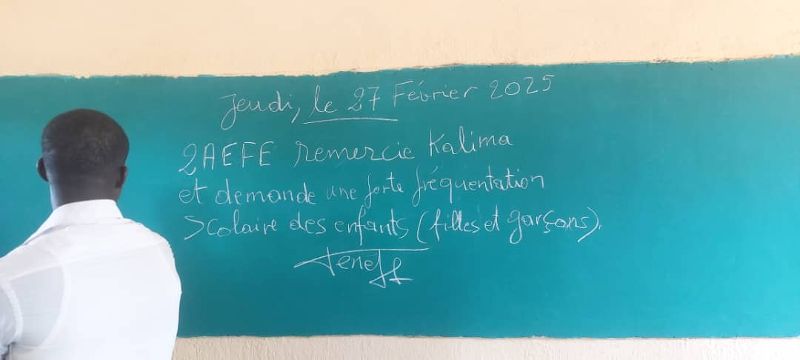 Jeudi, le 27 Février 2025
2AEFE remercie Kalima
et demande une forte fréquentation
Scolaire des enfants (filles et garçons).